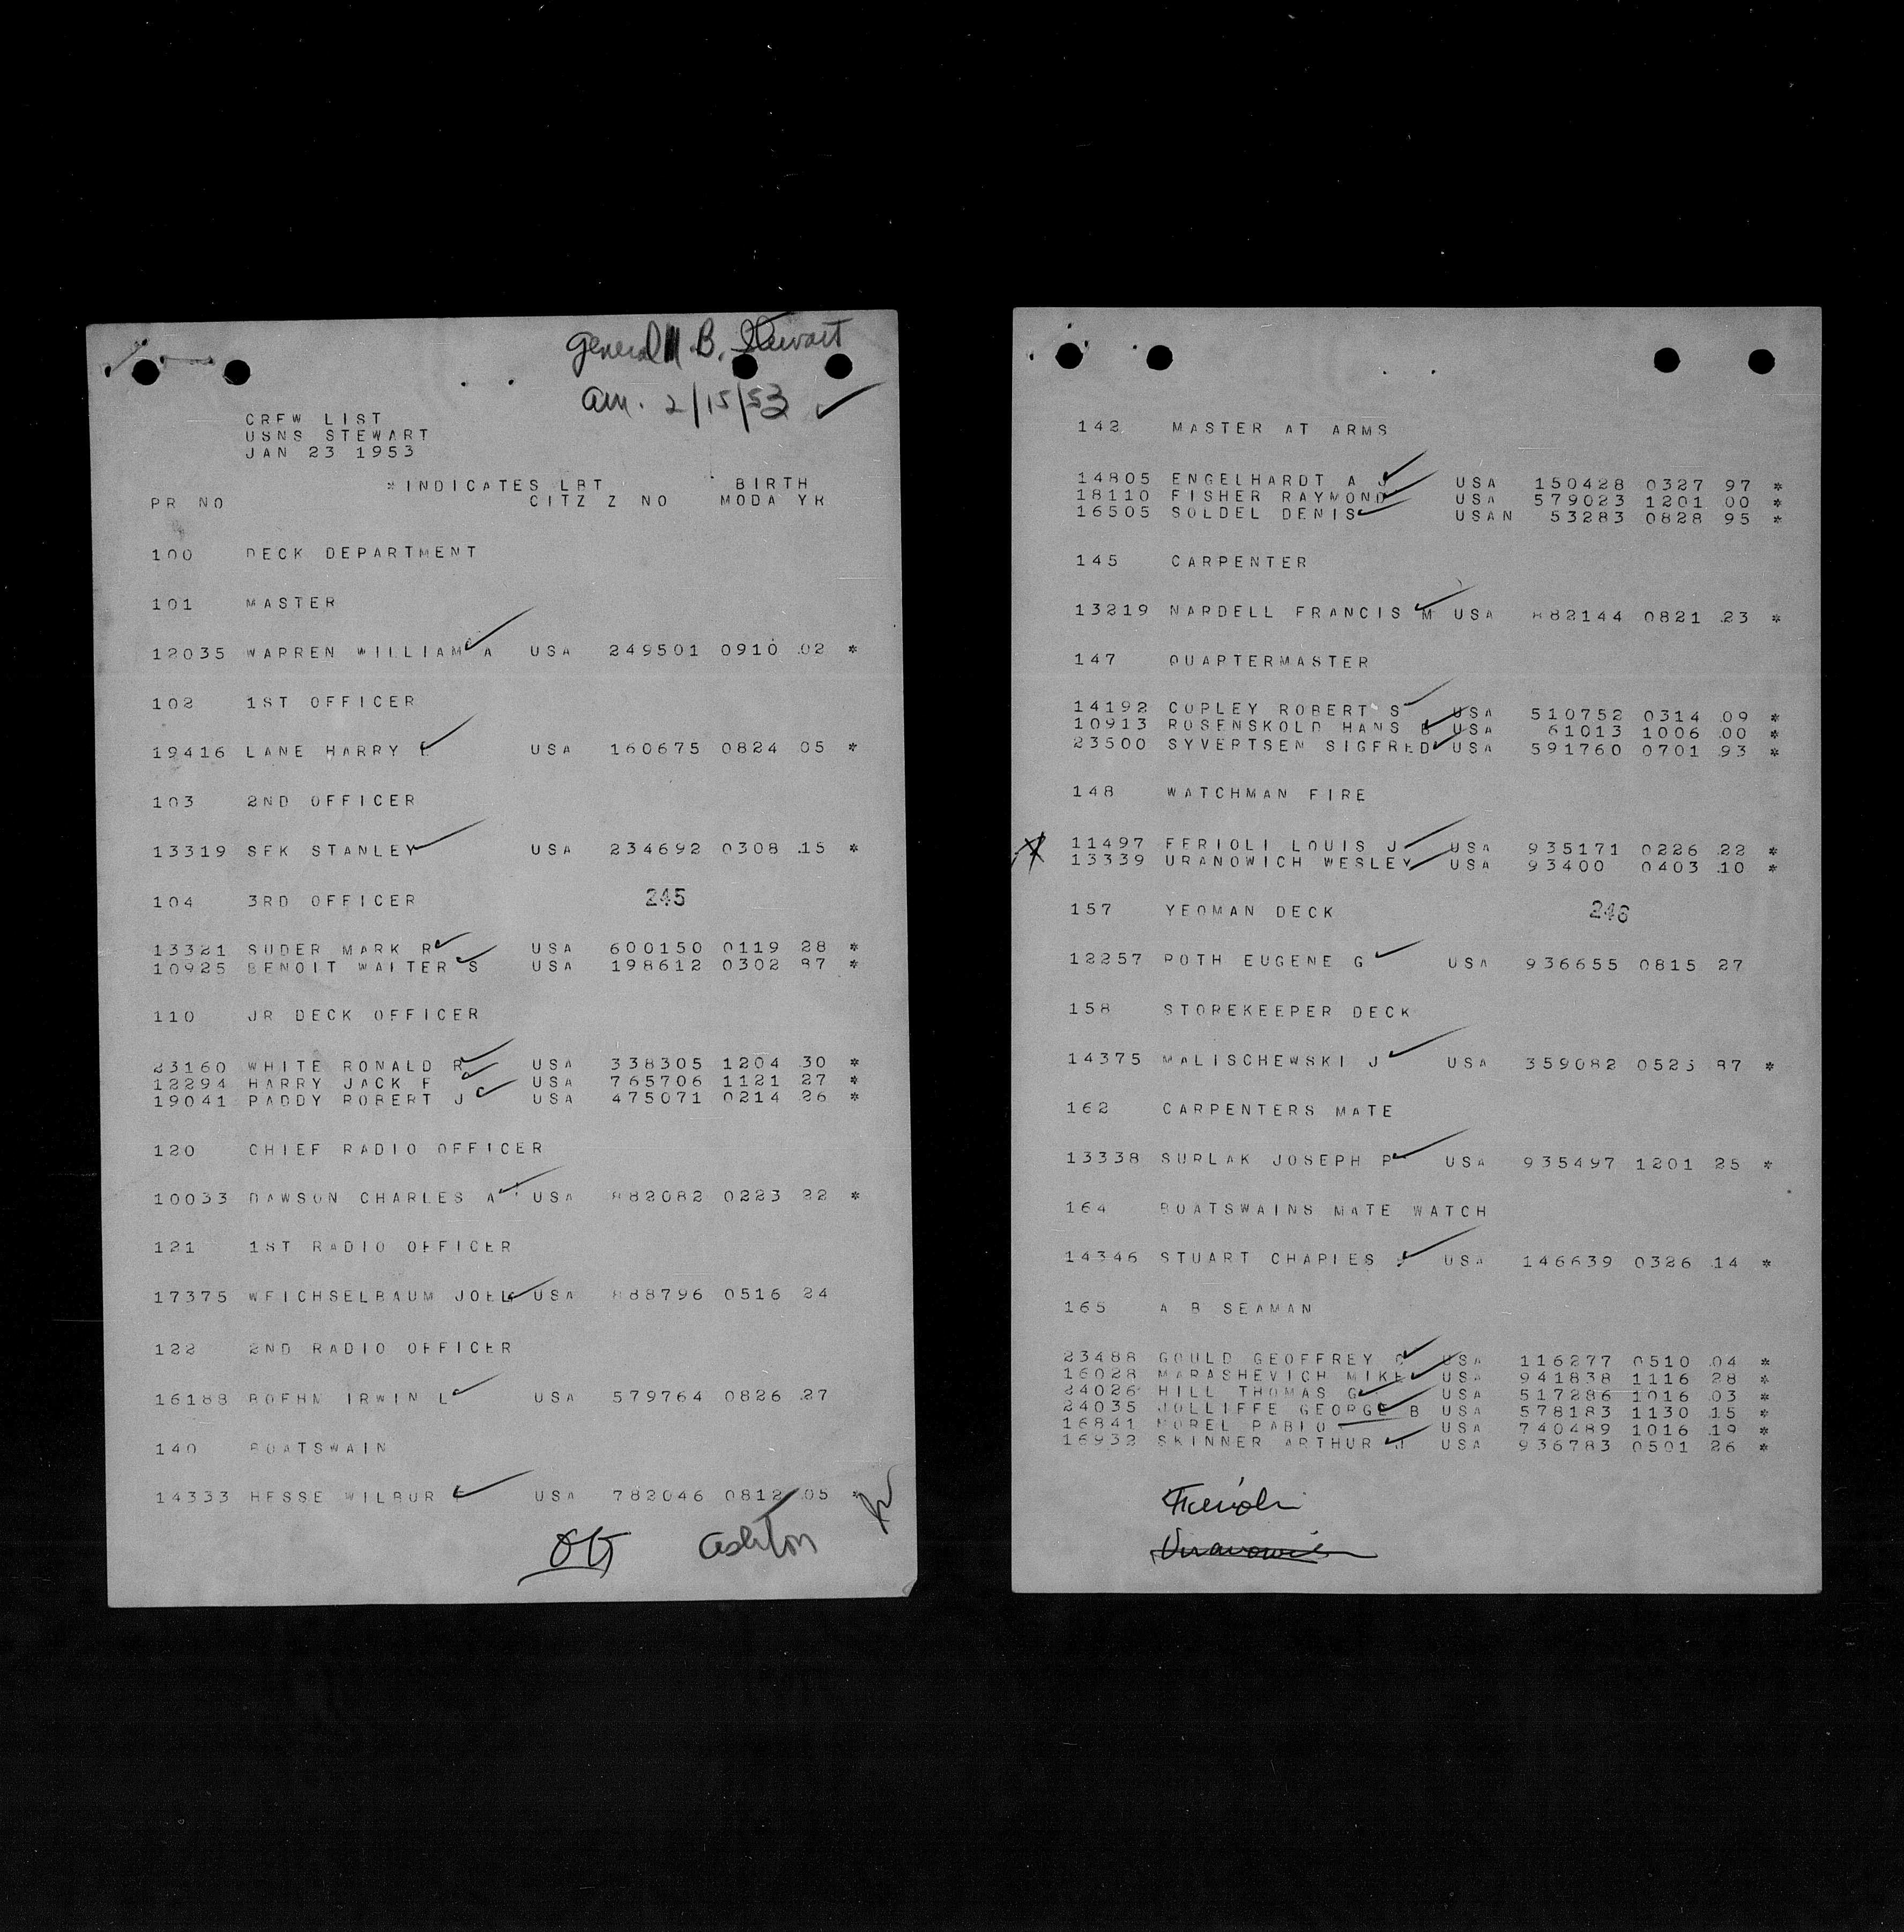 General M. B. Stewart
arr. 2/15/53
CREW LIST
USNS STEWART
JAN 23 1953
*INDICATES LBT BIRTH
PR NO CITZ Z NO MODA YR
100 DECK DEPARTMENT
101 MASTER
12035 WARREN WILLIAM A USA 249501 0910 02 *
102 1ST OFFICER
19416 LANE HARRY E USA 160675 0824 05 *
103 2ND OFFICER
13319 SEK STANLEY USA 234692 0308 15 *
104 3RD OFFICER 245
13321 SUDER MARK R USA 600150 0119 28 *
10925 BENOIT WALTER S USA 198612 0302 87 *
110 JR DECK OFFICER
23160 WHITE RONALD R USA 338305 1204 30 *
12294 HARRY JACK F USA 765706 1121 27 *
19041 PADDY ROBERT J USA 475071 0214 26 *
120 CHIEF RADIO OFFICER
10033 DAWSON CHARLES A USA 882082 0223 22 *
121 1ST RADIO OFFICER
17375 WEICHSELBAUM JOEL USA 888796 0516 24
122 2ND RADIO OFFICER
16188 BOEHM IRWIN L USA 579764 0826 27
140 BOATSWAIN
14333 HESSE WILBUR USA 782046 0812 05 *
Ashton
142 MASTER AT ARMS
14805 ENGELHARDT A J USA 150428 0327 97 *
18110 FISHER RAYMOND USA 579023 1201 00 *
16505 SOLDEL DENIS USAN 53283 0828 95 *
145 CARPENTER
13219 NARDELL FRANCIS M USA 882144 0821 23 *
147 QUARTERMASTER
14192 COPLEY ROBERT S USA 510752 0314 09 *
10913 ROSENSKOLD HANS B USA 61013 1006 00 *
23500 SYVERTSEN SIGFRED USA 591760 0701 93 *
148 WATCHMAN FIRE
11497 FERIOLI LOUIS J USA 935171 0226 22 *
13339 URANOWICH WESLEY USA 93400 0403 10 *
157 YEOMAN DECK 246
12257 ROTH EUGENE G USA 936655 0815 27
158 STOREKEEPER DECK
14375 MALISCHEWSKI J USA 359082 0525 87 *
162 CARPENTERS MATE
13338 SURLAK JOSEPH P USA 935497 1201 25 *
164 BOATSWAINS MATE WATCH
14346 STUART CHARLES USA 146639 0326 14 *
165 A B SEAMAN
23488 GOULD GEOFFREY C USA 116277 0510 04 *
16028 MARASHEVICH MIKE USA 941838 1116 28 *
24026 HILL THOMAS G USA 517286 1016 03 *
24035 JOLLIFFE GEORGE B USA 578183 1130 15 *
16841 MOREL PABLO USA 740489 1016 19 *
16932 SKINNER ARTHUR J USA 936783 0501 26 *
Ferioli
Uranowich